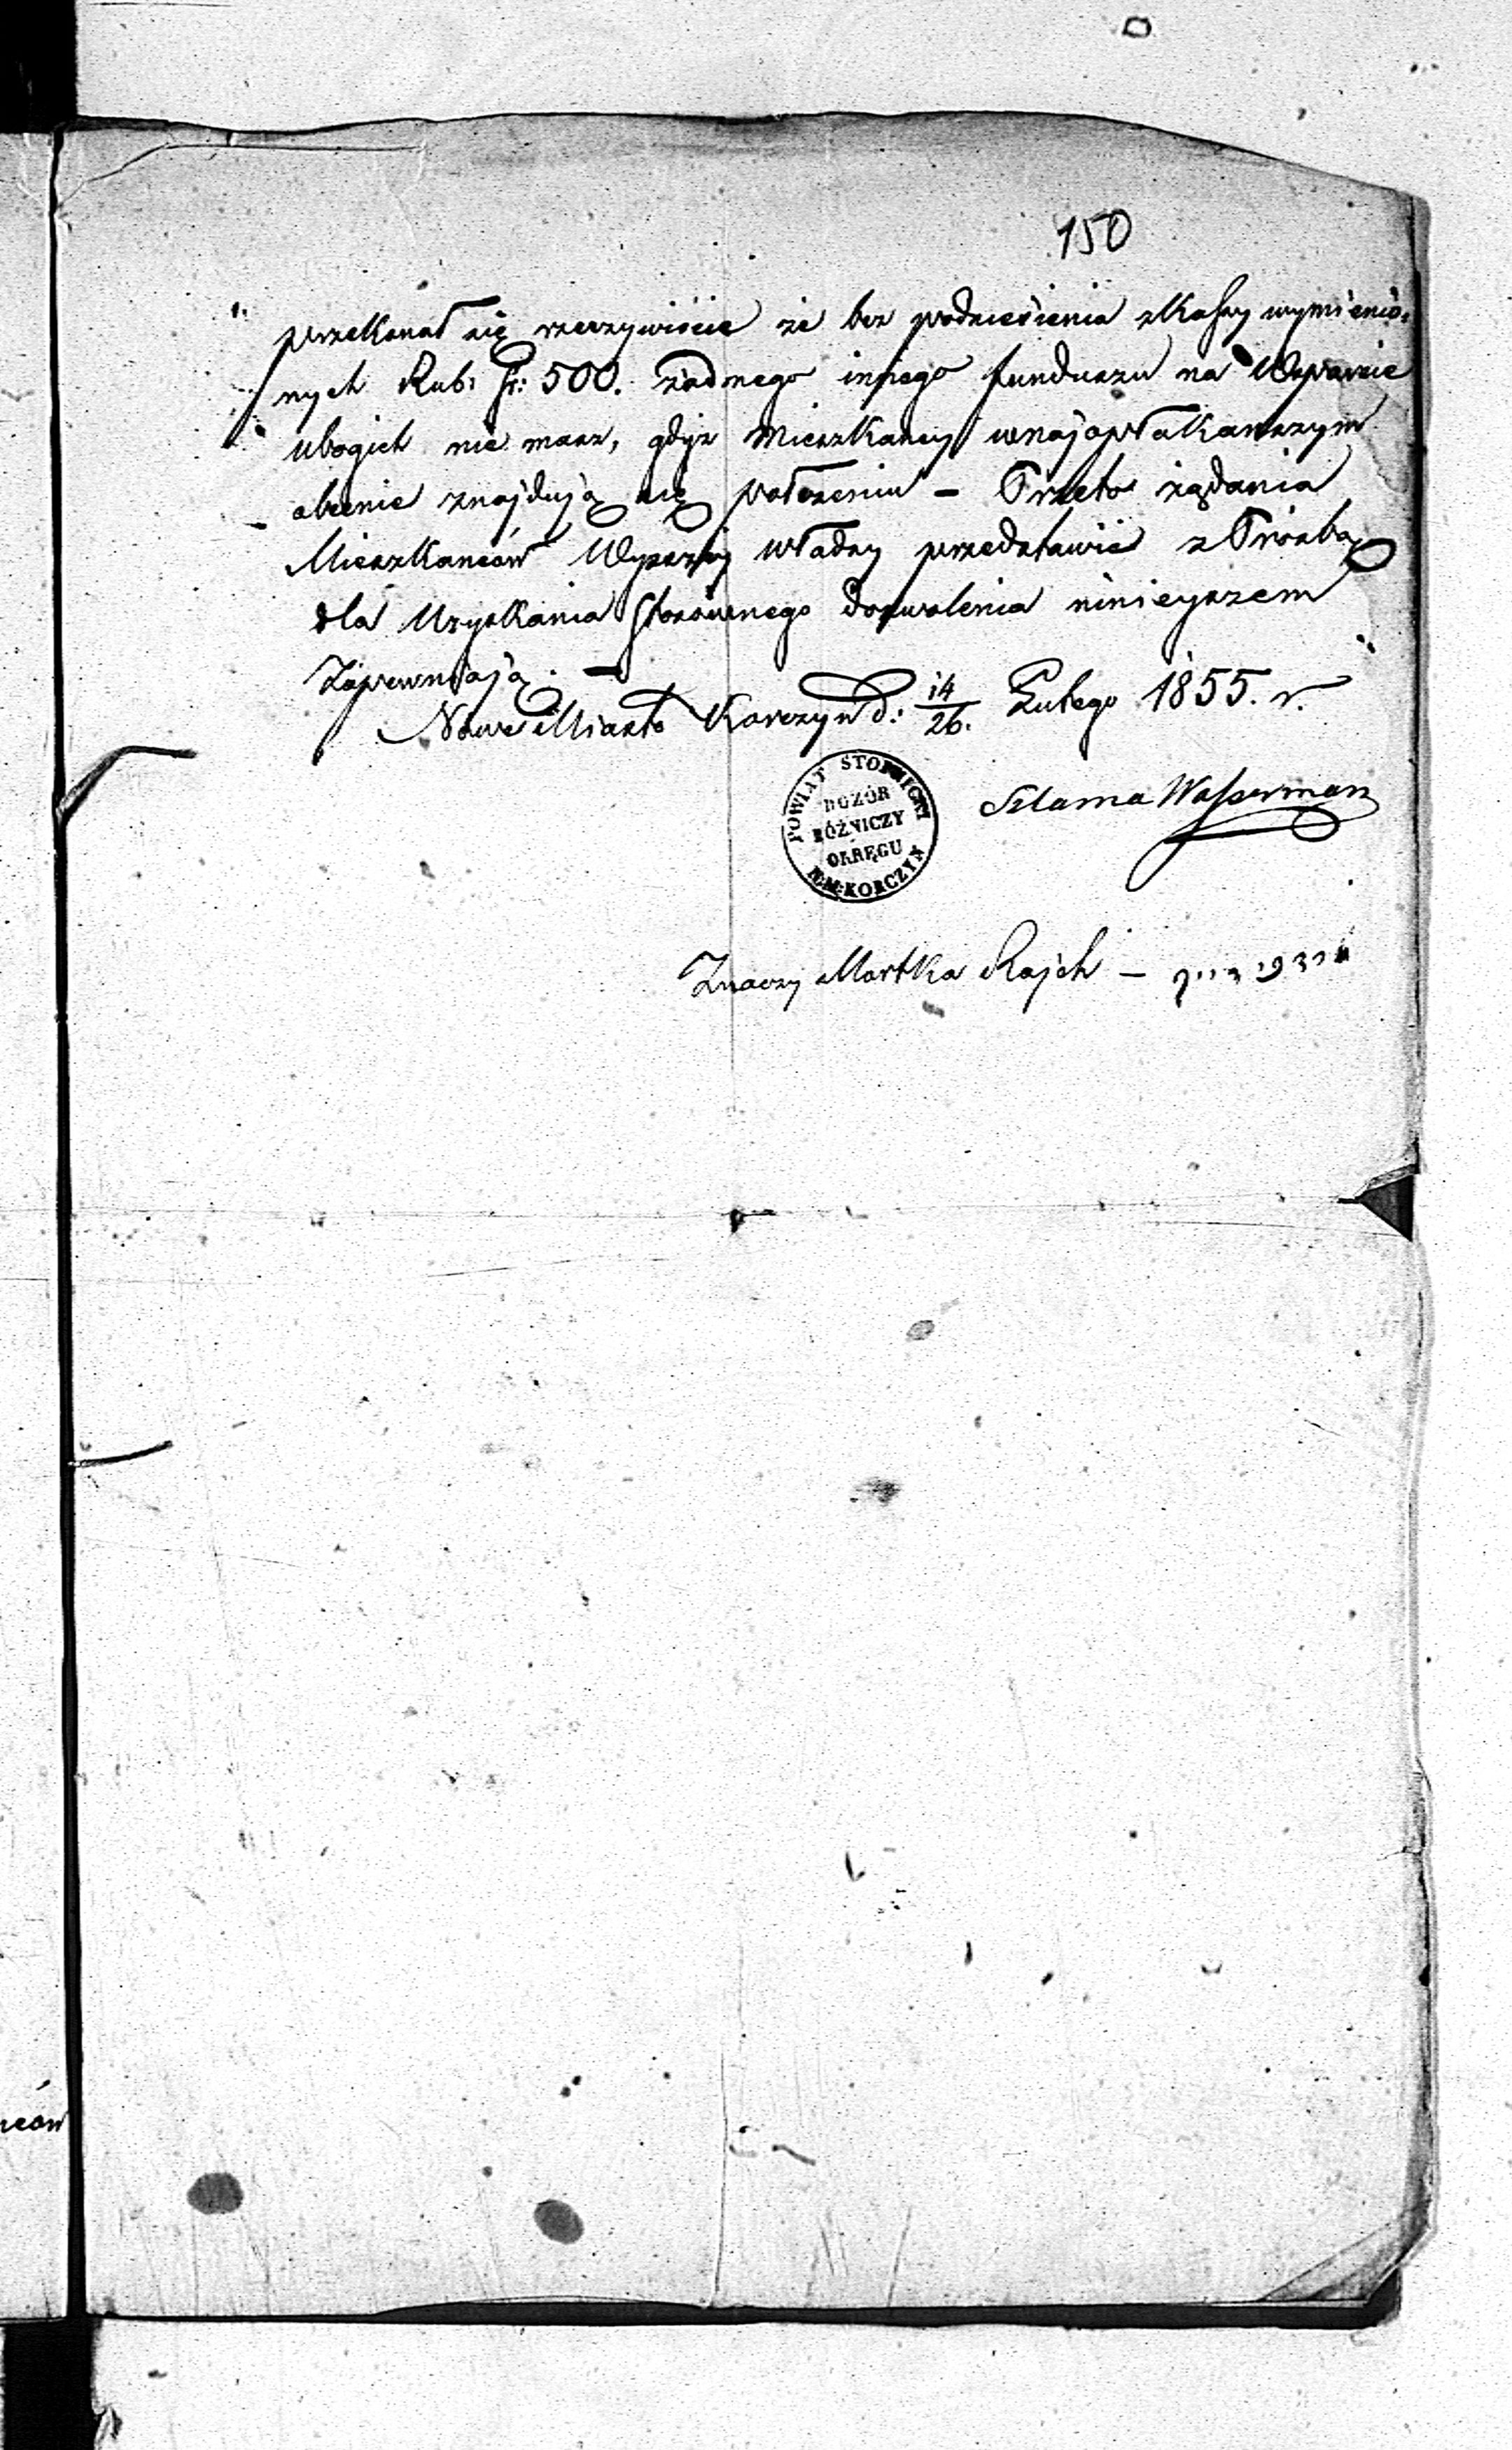 150
przekonał się rzeczywiście że bez podniesienia z kassy wymienio-
nych Rub: Sr: 500. żadnego innego funduszu na Wsparcie
ubogich nie masz, gdyż Mieszkańcy w najopłakańszym
obecnie znajdują się położeniu – Przeto żądania
Mieszkańców Wyższej władzy przedstawić z Prośbą
dla Uzyskania stosownego dozwolenia ninieyszem
Zapewniają. –
Nowe Miasto Korczyn d: 14/26. Lutego 1855. r.
POWIAT STOPNICKI
DOZÓR
BÓŻNICZY
OKRĘGU
N:M:KORCZYN
Szlama Wasserman
Znaczy Mortka Rajch –
ców